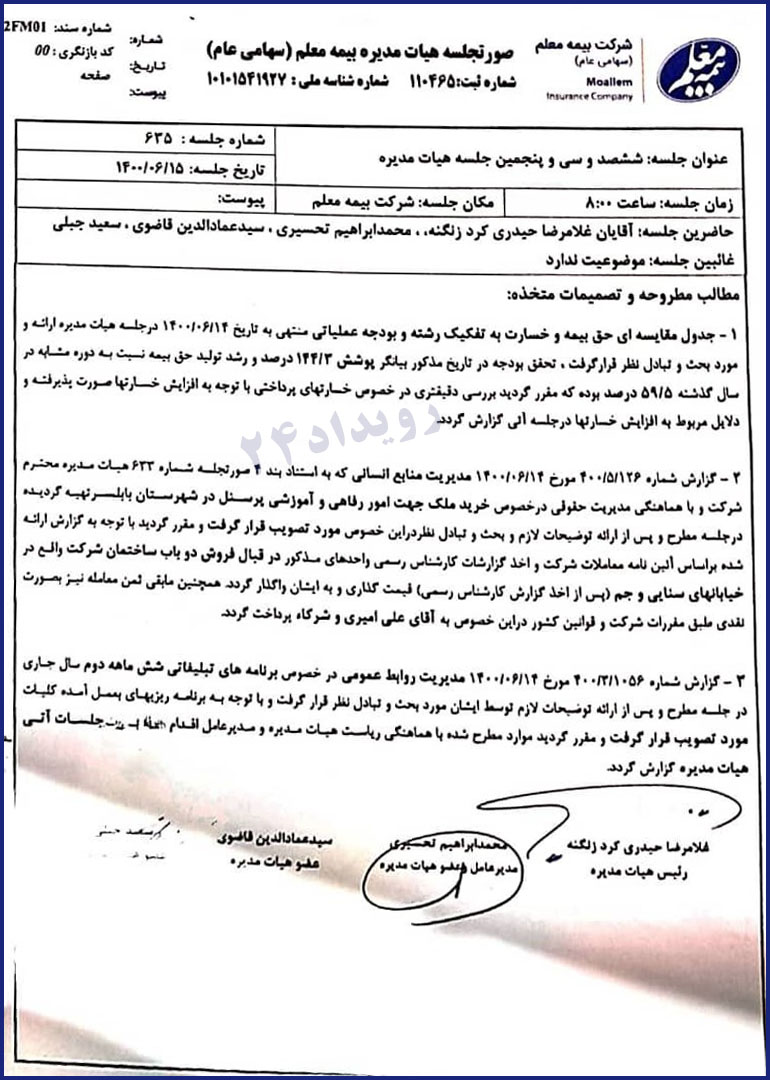 شرکت بیمه معلم
(سهامی عام)
Moallem
Insurance Company
بیمه معلم
صورتجلسه هیات مدیره بیمه معلم (سهامی عام)
شماره ثبت:۱۱۰۴۶۵ شماره شناسه ملی : ۱۰۱۰۱۵۴۱۹۲۷
شماره:
تاریخ:
پیوست:
شماره سند: 2FM01
کد بازنگری : 00
صفحه
عنوان جلسه: ششصد و سی و پنجمین جلسه هیات مدیره
شماره جلسه : ۶۳۵
تاریخ جلسه: ۱۴۰۰/۰۶/۱۵
زمان جلسه: ساعت ۸:۰۰
مکان جلسه: شرکت بیمه معلم
پیوست:
حاضرین جلسه: آقایان غلامرضا حیدری کرد زنگنه، ، محمدابراهیم تحسیری ، سیدعمادالدین قاضوی ، سعید جبلی
غائبین جلسه: موضوعیت ندارد
مطالب مطروحه و تصمیمات متخذه:
۱ - جدول مقایسه ای حق بیمه و خسارت به تفکیک رشته و بودجه عملیاتی منتهی به تاریخ ۱۴۰۰/۰۶/۱۴ درجلسه هیات مدیره ارائه و
مورد بحث و تبادل نظر قرارگرفت ، تحقق بودجه در تاریخ مذکور بیانگر پوشش ۱۴۴/۳ درصد و رشد تولید حق بیمه نسبت به دوره مشابه در
سال گذشته ۵۹/۵ درصد بوده که مقرر گردید بررسی دقیقتری در خصوص خسارتهای پرداختی با توجه به افزایش خسارتها صورت پذیرفته و
دلایل مربوط به افزایش خسارتها درجلسه آتی گزارش گردد.
رویداد۲۴
۲ - گزارش شماره ۴۰۰/۵/۱۲۶ مورخ ۱۴۰۰/۰۶/۱۴ مدیریت منابع انسانی که به استناد بند ۴ صورتجلسه شماره ۶۳۳ هیات مدیره محترم
شرکت و با هماهنگی مدیریت حقوقی درخصوص خرید ملک جهت امور رفاهی و آموزشی پرسنل در شهرستان بابلسرتهیه گردیده
درجلسه مطرح و پس از ارائه توضیحات لازم و بحث و تبادل نظردراین خصوص مورد تصویب قرار گرفت و مقرر گردید با توجه به گزارش ارائه
شده براساس آئین نامه معاملات شرکت و اخذ گزارشات کارشناس رسمی واحدهای مذکور در قبال فروش دو باب ساختمان شرکت واقع در
خیابانهای سنایی و جم (پس از اخذ گزارش کارشناس رسمی) قیمت گذاری و به ایشان واگذار گردد. همچنین مابقی ثمن معامله نیز بصورت
نقدی طبق مقررات شرکت و قوانین کشور دراین خصوص به آقای علی امیری و شرکاء پرداخت گردد.
۳ - گزارش شماره ۴۰۰/۳/۱۰۵۶ مورخ ۱۴۰۰/۰۶/۱۴ مدیریت روابط عمومی در خصوص برنامه های تبلیغاتی شش ماهه دوم سال جاری
در جلسه مطرح و پس از ارائه توضیحات لازم توسط ایشان مورد بحث و تبادل نظر قرار گرفت و با توجه به برنامه ریزیهای بعمل آمده کلیات
مورد تصویب قرار گرفت و مقرر گردید موارد مطرح شده با هماهنگی ریاست هیات مدیره و مدیرعامل اقدام جلسات آتی
هیات مدیره گزارش گردد.
غلامرضا حیدری کرد زنگنه
رئیس هیات مدیره
محمدابراهیم تحسیری
مدیرعامل و عضو هیات مدیره
سیدعمادالدین قاضوی
عضو هیات مدیره